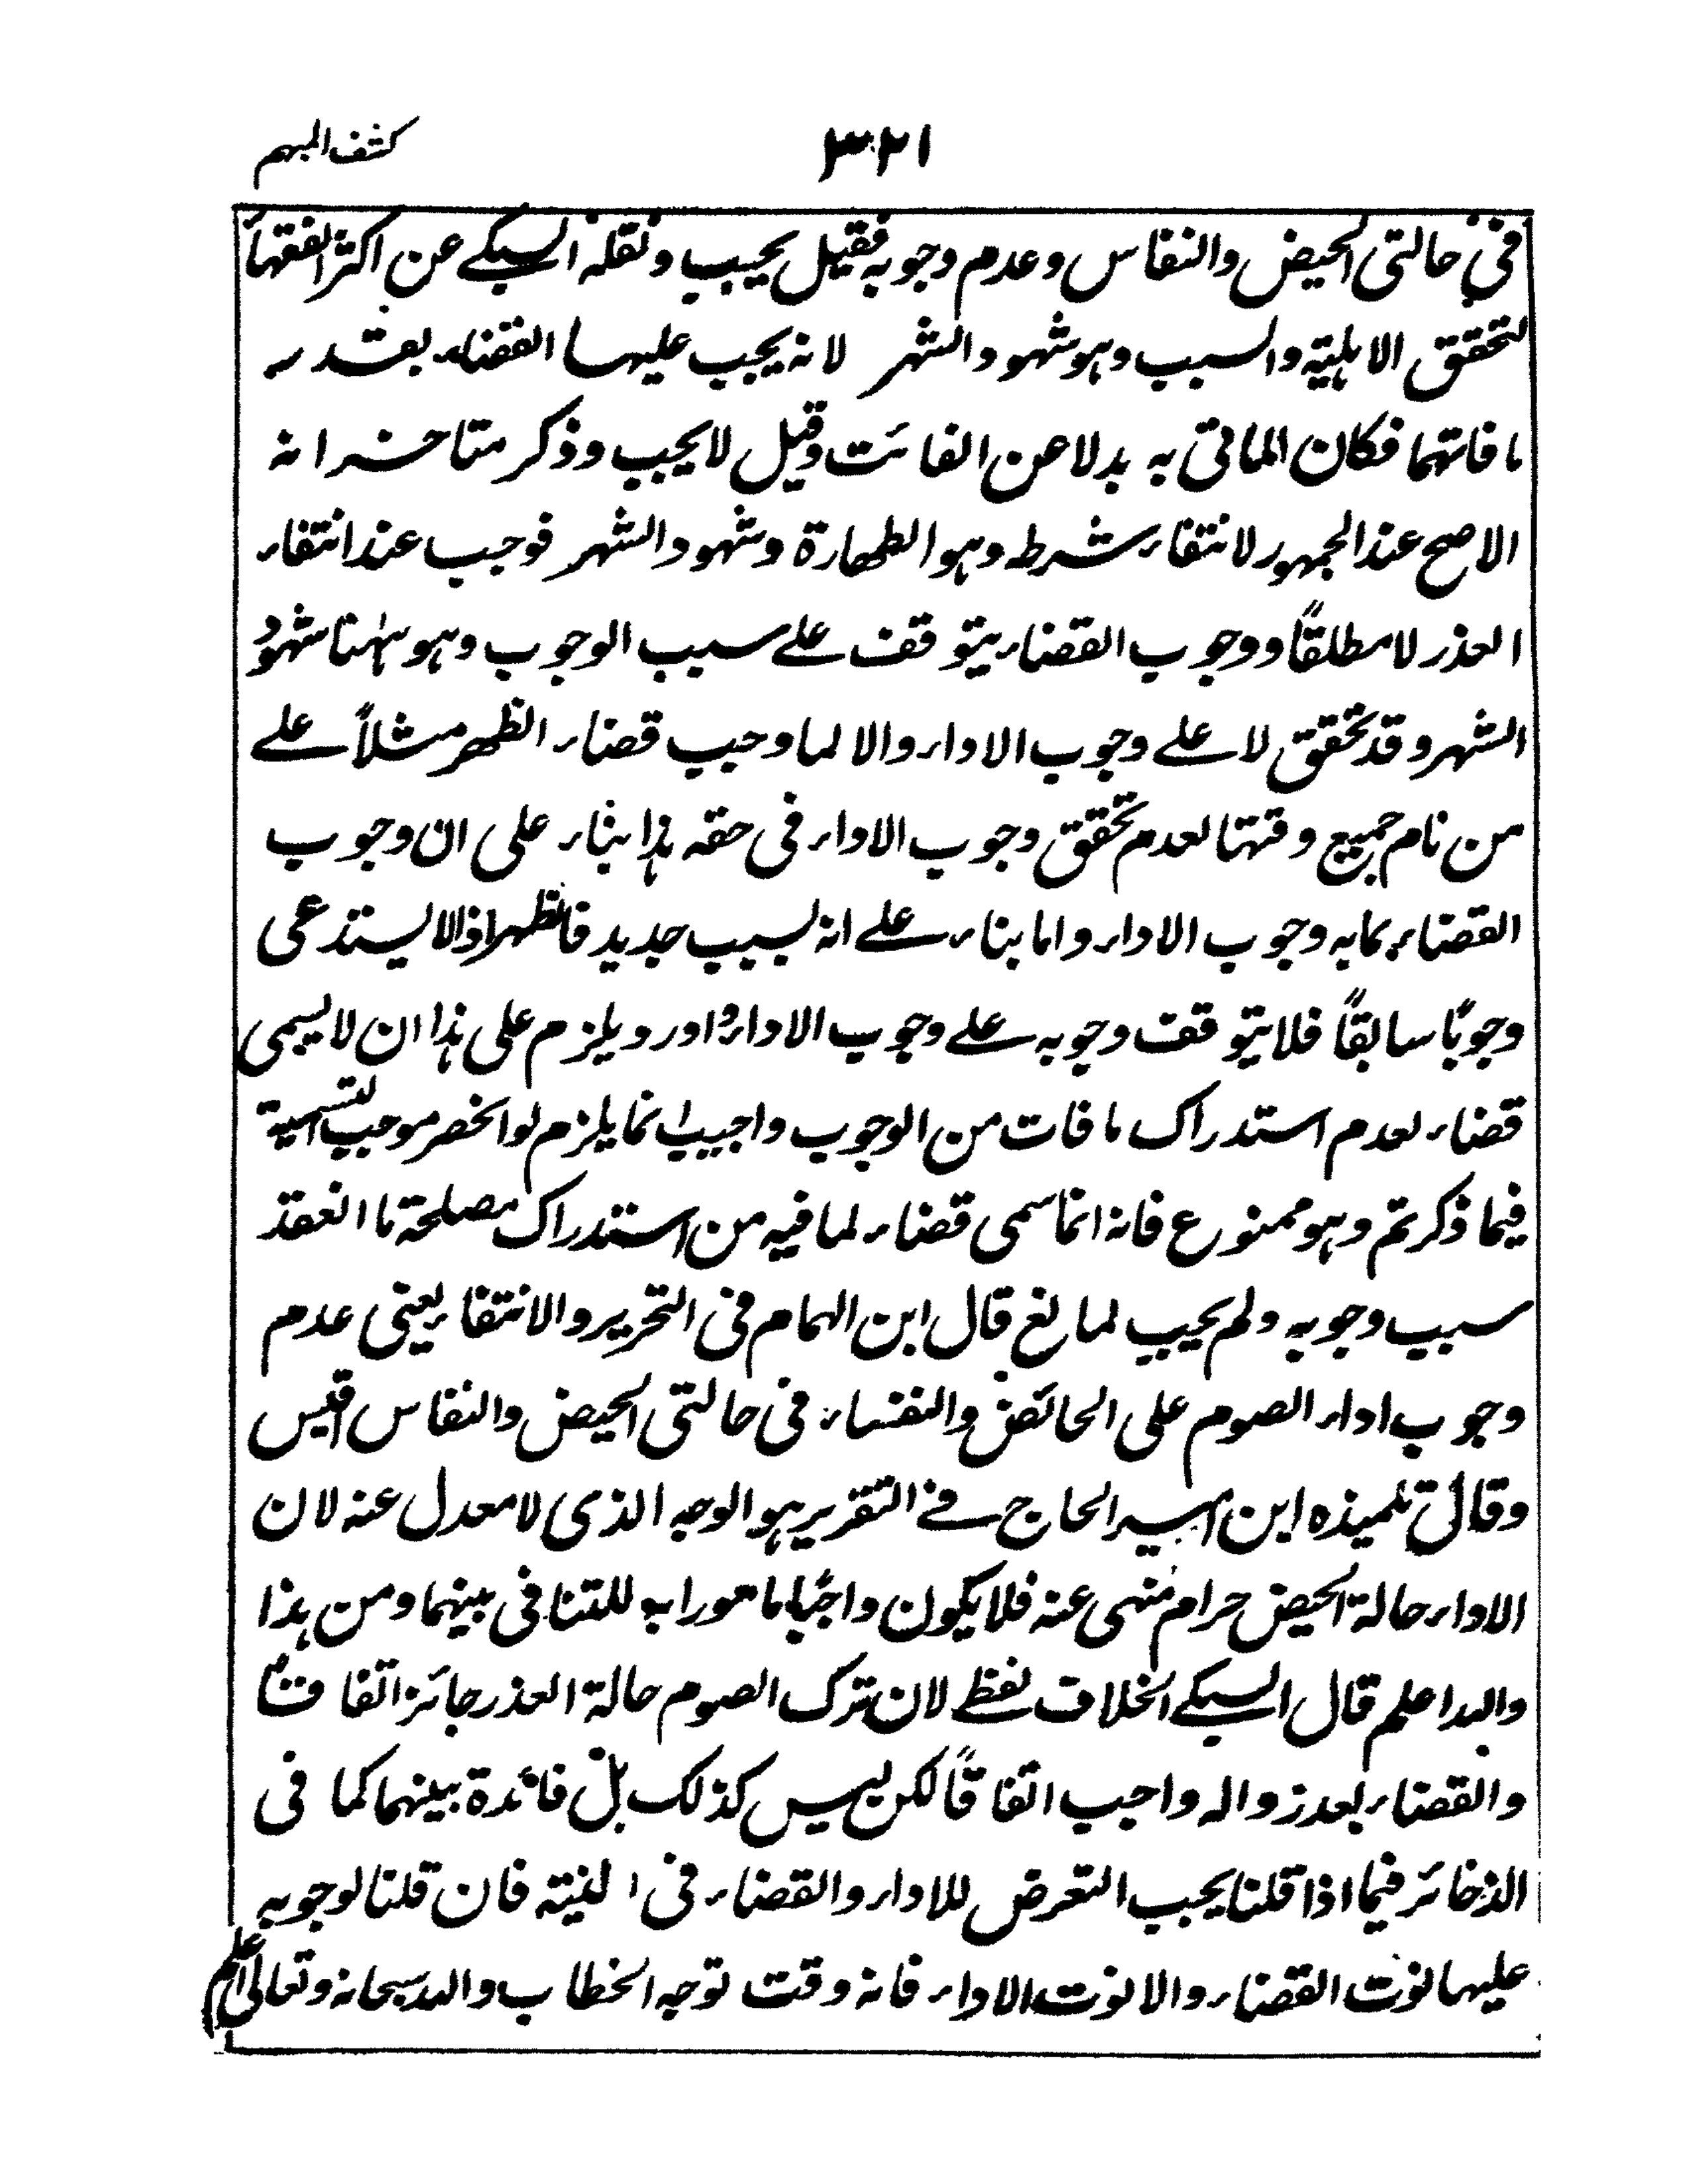 كشف المبهم
٣٢١
في حالتي الحيض والنفاس وعدم وجوبه فقيل يجب ونقله السبكي عن اكثر الفقهاء
لتحقق الاهلية والسبب وهو شهود الشهر لانه يجب عليها القضاء بقدر
ما فاتهما فكان الماتي به بدلا عن الفائت وقيل لا يجب وذكر متاخر انه
الاصح عند الجمهور لانتفاء شرطه وهو الطهارة وشهود الشهر فوجب عند انتفاء
العذر لا مطلقاً ووجوب القضاء يتوقف على سبب الوجوب وهو ههنا شهود
الشهر وقد تحقق لا على وجوب الاداء والا لما وجب قضاء الظهر مثلاً على
من نام جميع وقتها لعدم تحقق وجوب الاداء في حقه هذا بناء على ان وجوب
القضاء بما به وجوب الاداء واما بناء على انه لسبب جديد فاظهر اذ لا يستدعي
وجوبًا سابقاً فلا يتوقف وجوبه على وجوب الاداء واورد ويلزم على هذا ان لا يسمى
قضاء لعدم استدراك ما فات من الوجوب واجيب انما يلزم لو انحصر موجب التسمية
فيما ذكرتم وهو ممنوع فانه انما سمي قضاء لما فيه من استدراك مصلحة ما انعقد
سبب وجوبه ولم يجب لمانع قال ابن الهمام في التحرير والانتفاء يعني عدم
وجوب اداء الصوم على الحائض والنفساء في حالتي الحيض والنفاس اقيس
وقال تلميذه ابن امير الحاج في التقرير هو الوجه الذي لا معدل عنه لان
الاداء حالة الحيض حرام منهي عنه فلا يكون واجبًا مامورا به للتنافي بينهما ومن هذا
والله اعلم قال السبكي الخلاف لفظي لان ترك الصوم حالة العذر جائز اتفاقاً
والقضاء بعد زواله واجب اتفاقاً لكن ليس كذلك بل فائدة بينهما كما في
الذخائر فيما اذا قلنا يجب التعرض للاداء والقضاء في النية فان قلنا لوجوبه
عليها نوت القضاء والا نوت الاداء فانه وقت توجه الخطاب والله سبحانه وتعالى اعلم